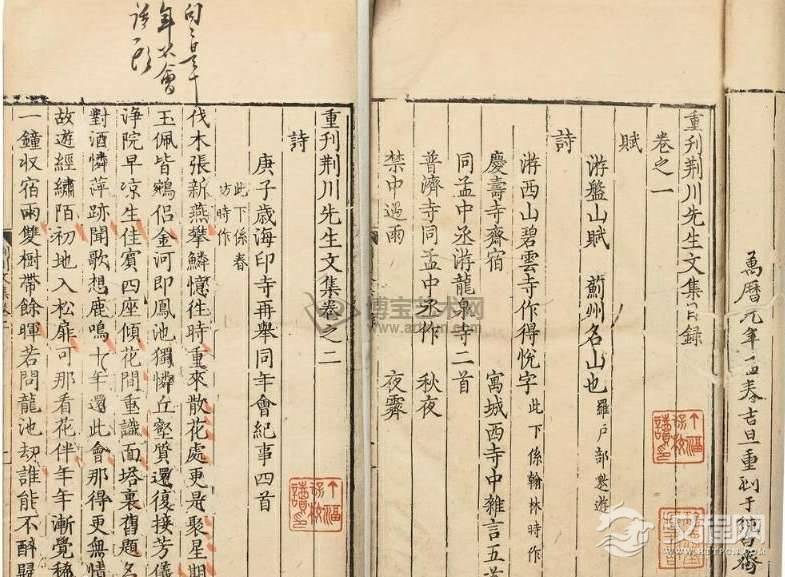 萬曆元年孟春吉旦重刊于純白齋
重刊荆川先生文集目録
卷之一
賦
游盤山賦 薊州名山也 羅戶部邀遊
詩
游西山碧雲寺作得悅字 此下係翰林時作
慶壽寺齋宿 寓城西寺中雜言五首
同孟中丞游龍泉寺二首
普濟寺同孟中丞作 秋夜
禁中遇雨 夜霽
重刊荆川先生文集卷之二
詩
庚子歲海印寺再舉同年會紀事四首
此下係春
坊時作
伐木張新燕攀鱗憶往時重來散花處更是聚星期
玉佩皆鵷侶金河即鳳池獨憐丘壑質還復接芳儀
淨院早凉生佳賓四座傾花間重識面塔裏舊題名
對酒憐萍跡聞歌想鹿鳴十年還此會那得更無情
故遊經繡陌初地入松扉可那看花伴年年漸覺稀
一鐘収宿雨雙樹帶餘暉若問龍池刼誰能不醉歸
博宝艺术网
汉程网
HTTPCN.COM